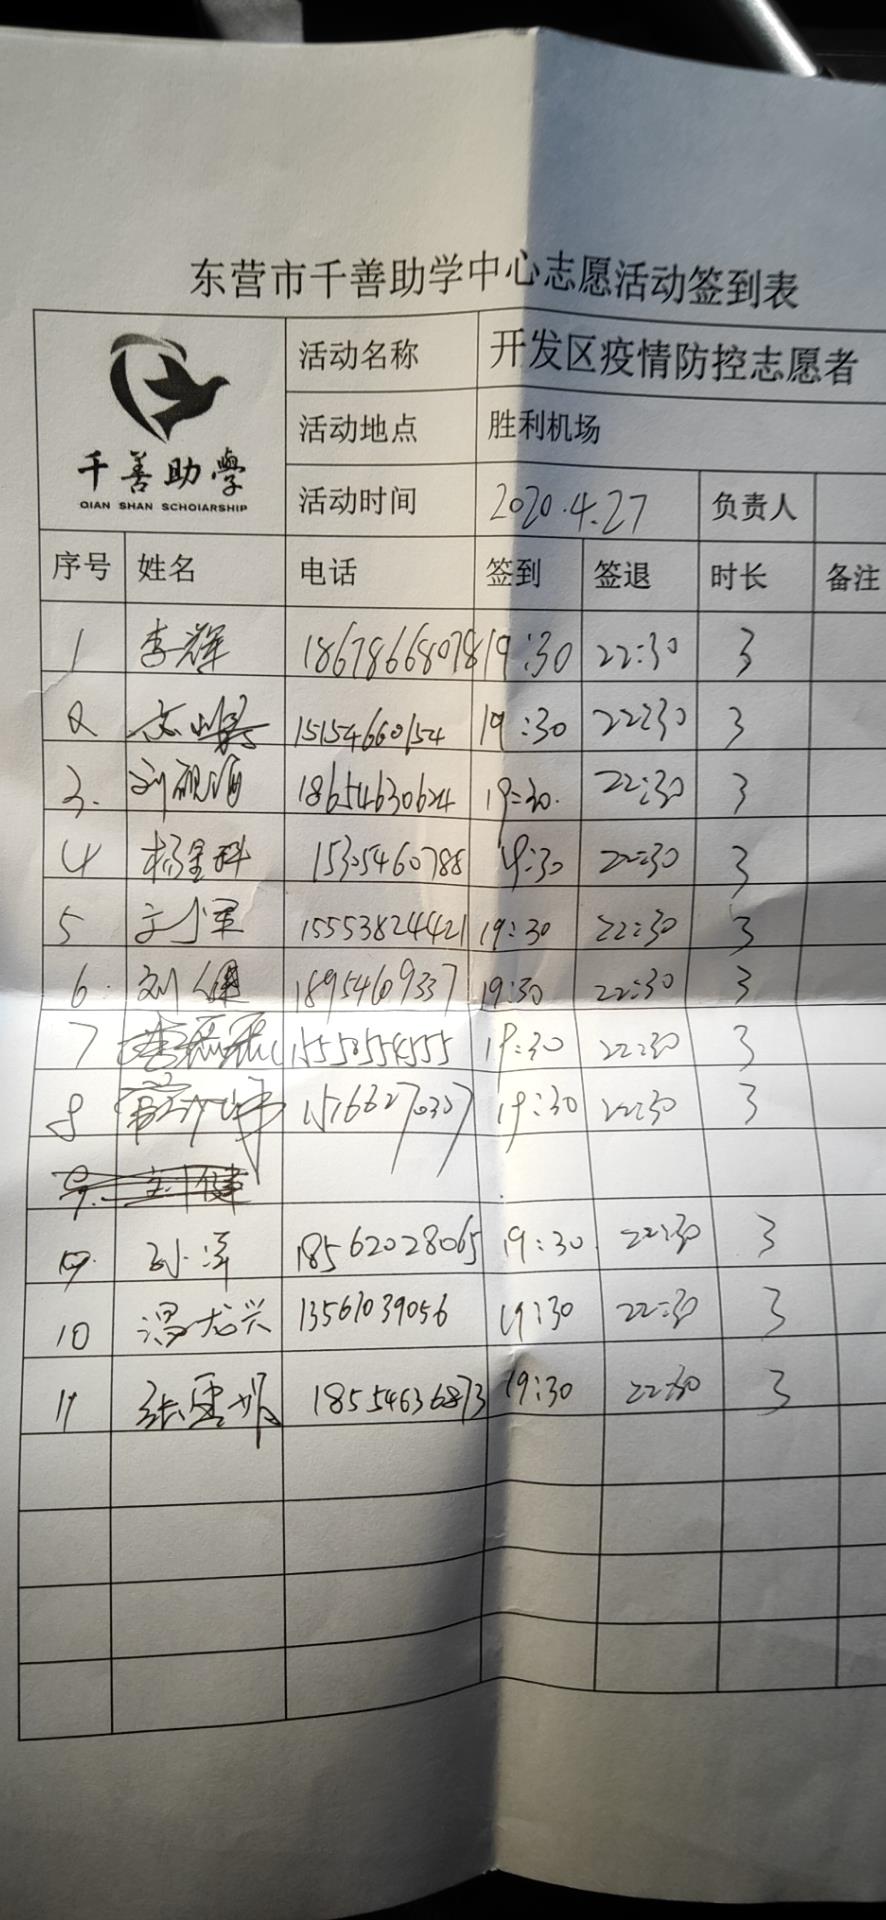 东营市千善助学中心志愿活动签到表
千善助學
QIAN SHAN SCHOIARSHIP
活动名称 开发区疫情防控志愿者
活动地点 胜利机场
活动时间 2020.4.27 负责人
序号 姓名 电话 签到 签退 时长 备注
1 李辉 18678668078 19:30 22:30 3
2 15154660154 19:30 22:30 3
3. 刘砚涵 18654630624 19:30. 22:30 3
4 杨金科 15305460788 19:30 22:30 3
5 15553824421 19:30 22:30 3
6. 刘健 18954609337 19:30 22:30 3
7 15550554555 19:30 22:30 3
8 19:30 22:30 3
9. 刘健
孙泽 18562028065 19:30 22:30 3
10 冯龙兴 13561039056 19:30 22:30 3
11 张雪娇 18554636873 19:30 22:30 3